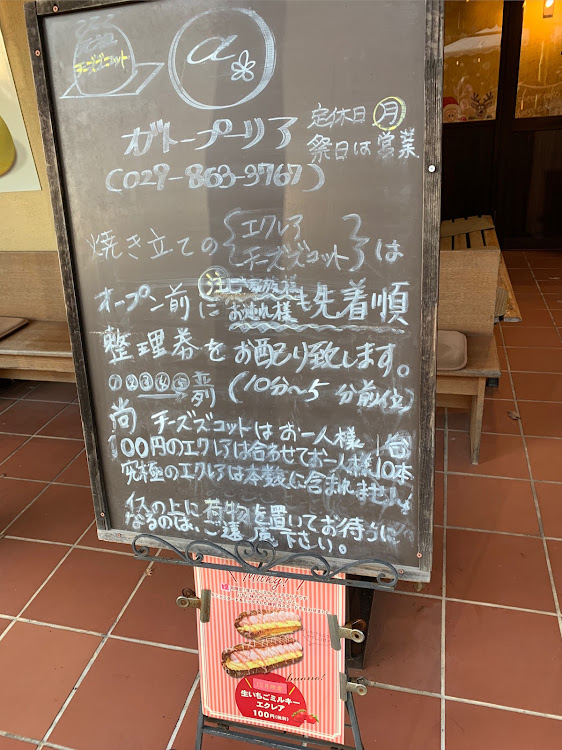 チーズズコット
a
ガトープーリア
定休日 月
祭日は営業
(029-863-3767)
焼き立ての エクレア チーズズコット は
オープン前に 注 ご家族様 お連れ様 も先着順
整理券をお配り致します。
①②③④⑤ → 列 (10分〜5分前位)
尚 チーズズコットはお一人様1台
100円のエクレアは合わせてお一人様10本
究極のエクレアは本数に含まれません
イスの上に荷物を置いてお待ちに
なるのは、ご遠慮下さい。
Milky
生いちごミルキー
エクレア
100円(税別)